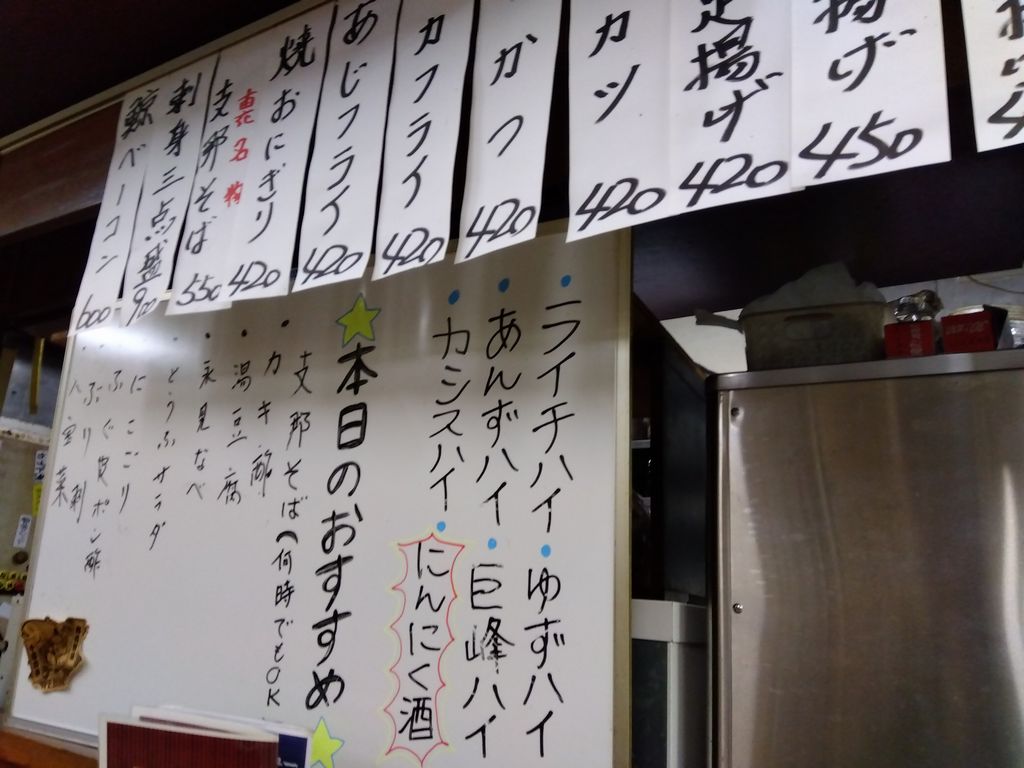 揚げ 450
揚げ 420
カツ 420
カツ 420
カフライ 420
あじフライ 420
焼おにぎり 420
裏名物
支那そば 550
刺身三点盛 90
鯨ベーコン 600
・ライチハイ・ゆずハイ
・あんずハイ・巨峰ハイ
・カシスハイ・にんにく酒
本日のおすすめ
・支那そば(何時でもOK
カキ酢
・湯豆腐
・永見なべ
・とうふサラダ
にこごり
ふぐ皮ポン酢
ぶり刺